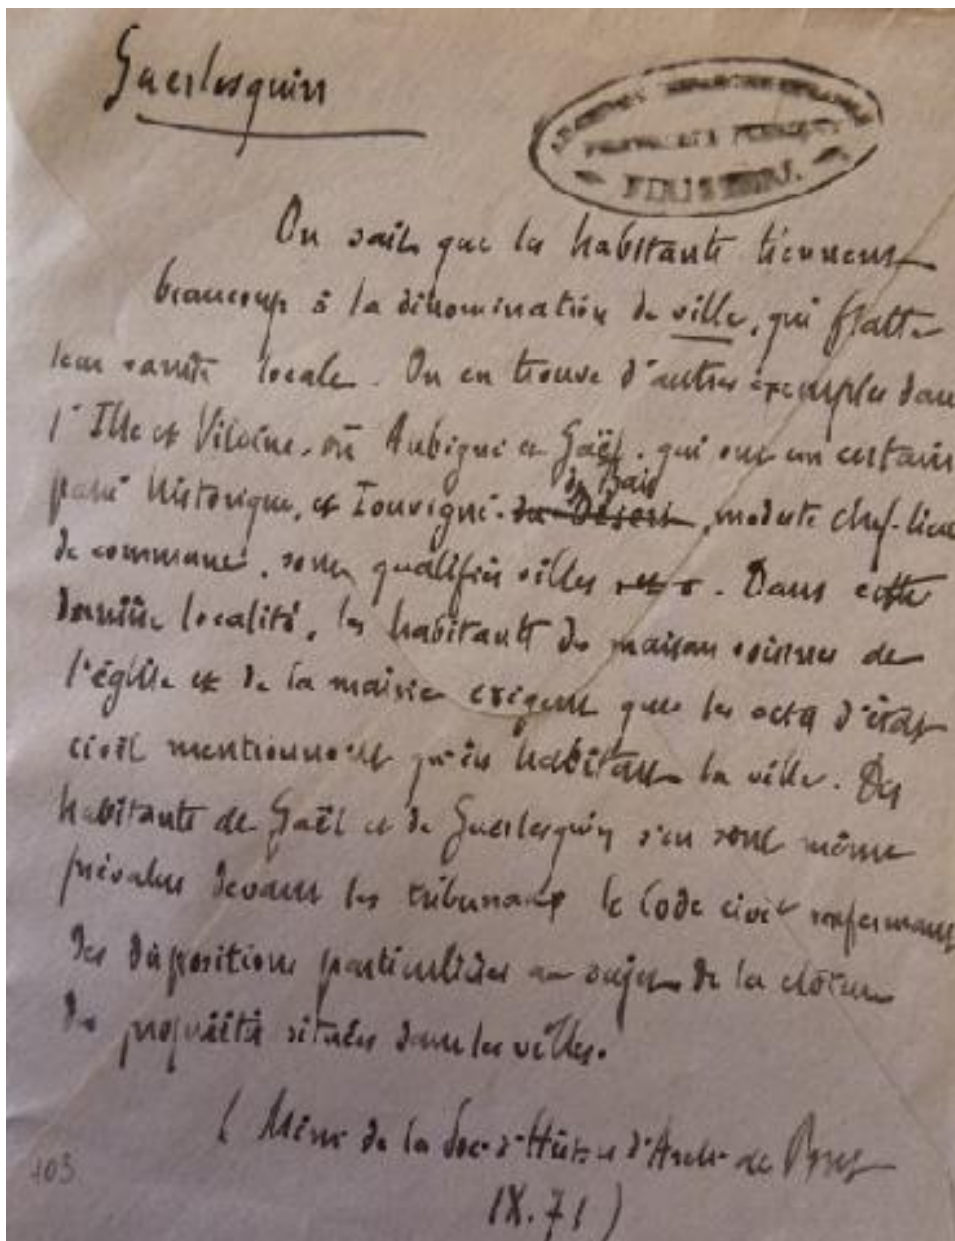 Guerlesquin
FINISTERE.
On sait que les habitants tiennent
beaucoup à la dénomination de ville, qui flatte
leur vanité locale. On en trouve d'autres exemples dans
l'Ille et Vilaine, où Aubigné et Gaël, qui ont un certain
passé historique, et Louvigné-du-Désert de Bais, modeste chef-lieu
de commune, sont qualifiés villes. Dans cette
dernière localité, les habitants des maisons voisines de
l'église et de la mairie exigent que les actes d'état
civil mentionnent qu'ils habitent la ville. Des
habitants de Gaël et de Guerlesquin s'en sont même
prévalus devant les tribunaux le Code civil renfermant
des dispositions particulières au sujet de la clôture
des propriétés situées dans les villes.
(Mém. de la Soc. d'Hist. et d'Arch. de Bret
IX. 71)
103